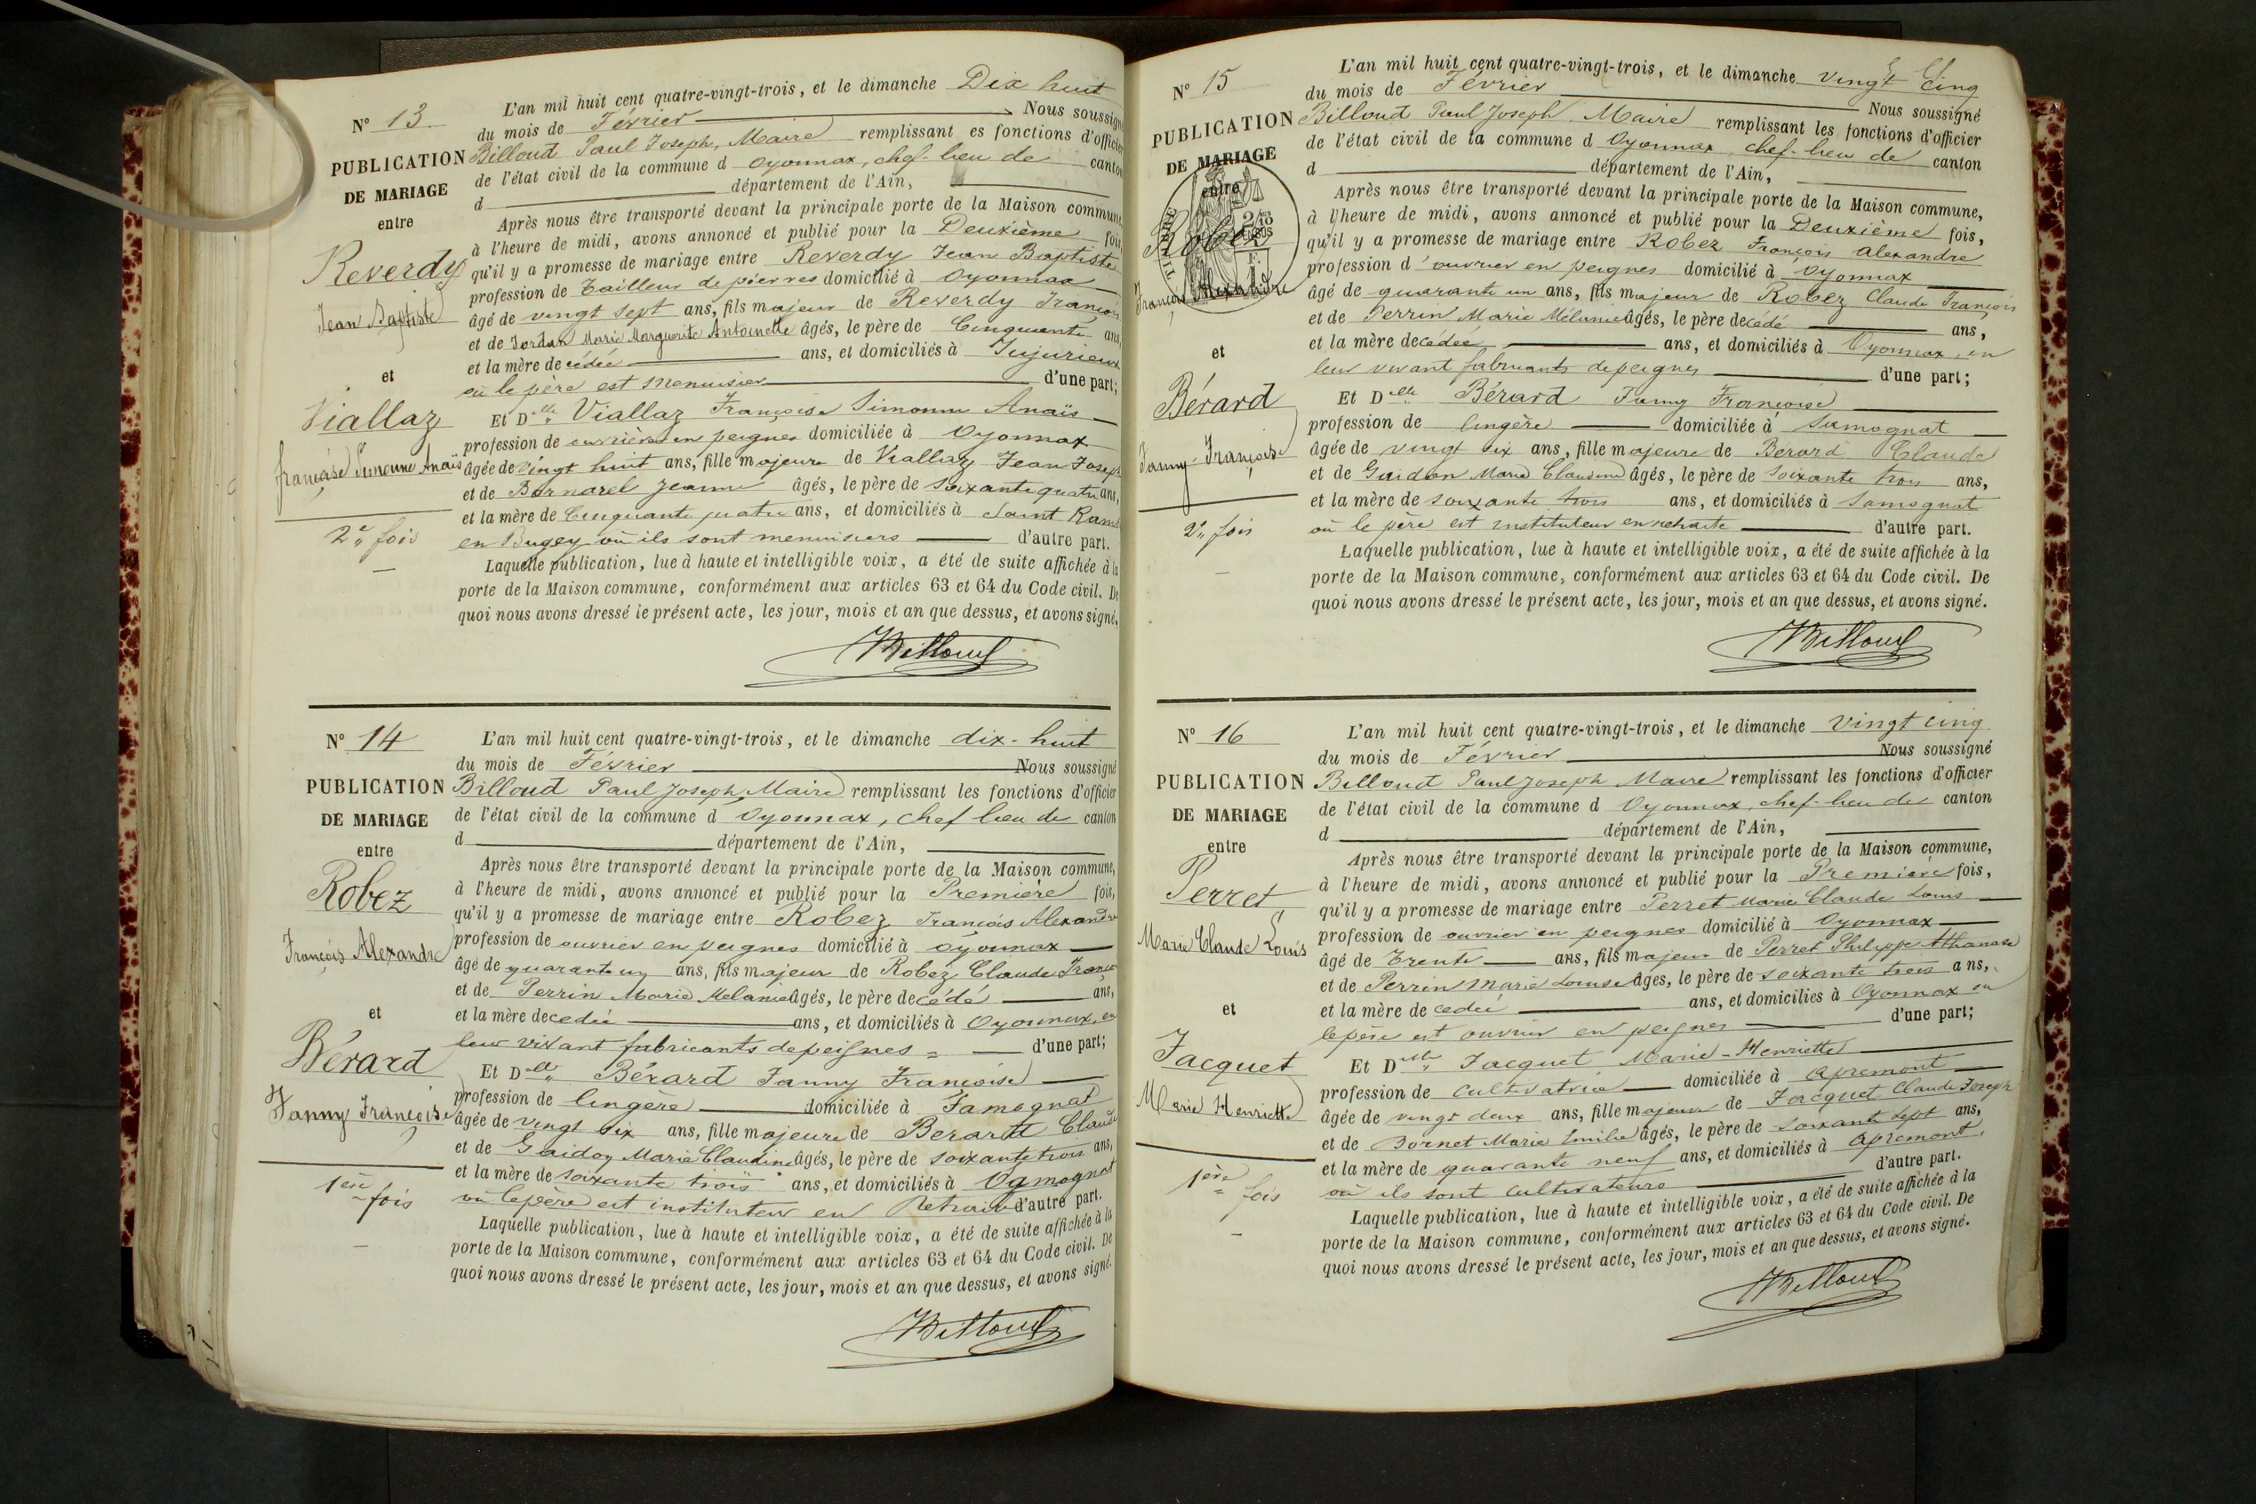 N° 13
PUBLICATION
DE MARIAGE
entre
Reverdy
Jean Baptiste
et
Viallaz
françoise Simonne Anaïs
2e fois
L'an mil huit cent quatre-vingt-trois, et le dimanche Dix huit
du mois de Février Nous soussigné
Billoud Paul Joseph, Maire remplissant es fonctions d'officier
de l'état civil de la commune d Oyonnax, chef-lieu de canton
d département de l'Ain,
Après nous être transporté devant la principale porte de la Maison commune,
à l'heure de midi, avons annoncé et publié pour la Deuxième fois,
qu'il y a promesse de mariage entre Reverdy Jean Baptiste
profession de Tailleur de pierres domicilié à Oyonnax
âgé de vingt sept ans, fils majeur de Reverdy François
et de Jordan Marie Marguerite Antoinette âgés, le père de Cinquante ans,
et la mère de cédée ans, et domiciliés à Jujurieux
où le père est menuisier d'une part;
Et Delle Viallaz Françoise Simonne Anaïs
profession de ouvrière en peignes domiciliée à Oyonnax
âgée de vingt huit ans, fille majeure de Viallaz Jean Joseph
et de Bornarel Jeanne âgés, le père de soixante quatre ans,
et la mère de Cinquante quatre ans, et domiciliés à Saint Ramb
en Bugey où ils sont menuisiers d'autre part.
Laquelle publication, lue à haute et intelligible voix, a été de suite affichée à la
porte de la Maison commune, conformément aux articles 63 et 64 du Code civil. De
quoi nous avons dressé le présent acte, les jour, mois et an que dessus, et avons signé.
Billoud
N° 14
PUBLICATION
DE MARIAGE
entre
Robez
François Alexandre
et
Bérard
Fanny Françoise
1ère fois
L'an mil huit cent quatre-vingt-trois, et le dimanche dix-huit
du mois de Février Nous soussigné
Billoud Paul Joseph Maire remplissant les fonctions d'officier
de l'état civil de la commune d Oyonnax, chef lieu de canton
d département de l'Ain,
Après nous être transporté devant la principale porte de la Maison commune,
à l'heure de midi, avons annoncé et publié pour la Première fois,
qu'il y a promesse de mariage entre Robez François Alexandre
profession de ouvrier en peignes domicilié à Oyonnax
âgé de quarante un ans, fils majeur de Robez Claude Françoi
et de Perrin Marie Melanie âgés, le père de cédé ans,
et la mère de cedée ans, et domiciliés à Oyonnax, en
leur vivant fabricants de peignes = d'une part;
Et Delle Bérard Fanny Françoise
profession de lingère domiciliée à Samognat
âgée de vingt six ans, fille majeure de Berard Claude
et de Gaidon Marie Claudine âgés, le père de soixante trois ans,
et la mère de soixante trois ans, et domiciliés à Ogmognat
où le père est instituteur en Retraite d'autre part.
Laquelle publication, lue à haute et intelligible voix, a été de suite affichée à la
porte de la Maison commune, conformément aux articles 63 et 64 du Code civil. De
quoi nous avons dressé le présent acte, les jour, mois et an que dessus, et avons signé.
Billoud
N° 15
PUBLICATION
DE MARIAGE
entre
Robez
François Alexandre
et
Bérard
Fanny Françoise
2e fois
L'an mil huit cent quatre-vingt-trois, et le dimanche vingt Cinq
du mois de Février Nous soussigné
Billoud Paul Joseph Maire remplissant les fonctions d'officier
de l'état civil de la commune d Oyonnax chef-lieu de canton
d département de l'Ain,
Après nous être transporté devant la principale porte de la Maison commune,
à l'heure de midi, avons annoncé et publié pour la Deuxième fois,
qu'il y a promesse de mariage entre Robez François alexandre
profession d'ouvrier en peignes domicilié à Oyonnax
âgé de quarante un ans, fils majeur de Robez Claude François
et de Perrin Marie Mélanie âgés, le père decédé ans,
et la mère decédée ans, et domiciliés à Oyonnax, en
leur vivant fabricants de peignes d'une part;
Et Delle Bérard Fanny Françoise
profession de lingère domiciliée à Samognat
âgée de vingt six ans, fille majeure de Bérard Claude
et de Gaidon Marie Claudine âgés, le père de soixante trois ans,
et la mère de soixante trois ans, et domiciliés à Samognat
où le père est instituteur en retraite d'autre part.
Laquelle publication, lue à haute et intelligible voix, a été de suite affichée à la
porte de la Maison commune, conformément aux articles 63 et 64 du Code civil. De
quoi nous avons dressé le présent acte, les jour, mois et an que dessus, et avons signé.
Billoud
N° 16
PUBLICATION
DE MARIAGE
entre
Perret
Marie Claude Louis
et
Jacquet
Marie Henriette
1ère fois
L'an mil huit cent quatre-vingt-trois, et le dimanche vingt cinq
du mois de Février Nous soussigné
Billoud Paul Joseph Maire remplissant les fonctions d'officier
de l'état civil de la commune d Oyonnax, chef-lieu de canton
d département de l'Ain,
Après nous être transporté devant la principale porte de la Maison commune,
à l'heure de midi, avons annoncé et publié pour la Première fois,
qu'il y a promesse de mariage entre Perret Marie Claude Louis
profession de ouvrier en peignes domicilié à Oyonnax
âgé de Trente ans, fils majeur de Perret Philippe Athanase
et de Perrin Marie Louise âgés, le père de soixante trois ans,
et la mère de cedée ans, et domiciliés à Oyonnax ou
le père est ouvrier en peignes d'une part;
Et Delle Jacquet Marie-Henriette
profession de Cultivatrice domiciliée à apremont
âgée de vingt deux ans, fille majeure de Jacquet Claude Joseph
et de Bornet Marie Emilie âgés, le père de Soixante sept ans,
et la mère de quarante neuf ans, et domiciliés à apremont,
où ils sont cultivateurs d'autre part.
Laquelle publication, lue à haute et intelligible voix, a été de suite affichée à la
porte de la Maison commune, conformément aux articles 63 et 64 du Code civil. De
quoi nous avons dressé le présent acte, les jour, mois et an que dessus, et avons signé.
Billoud